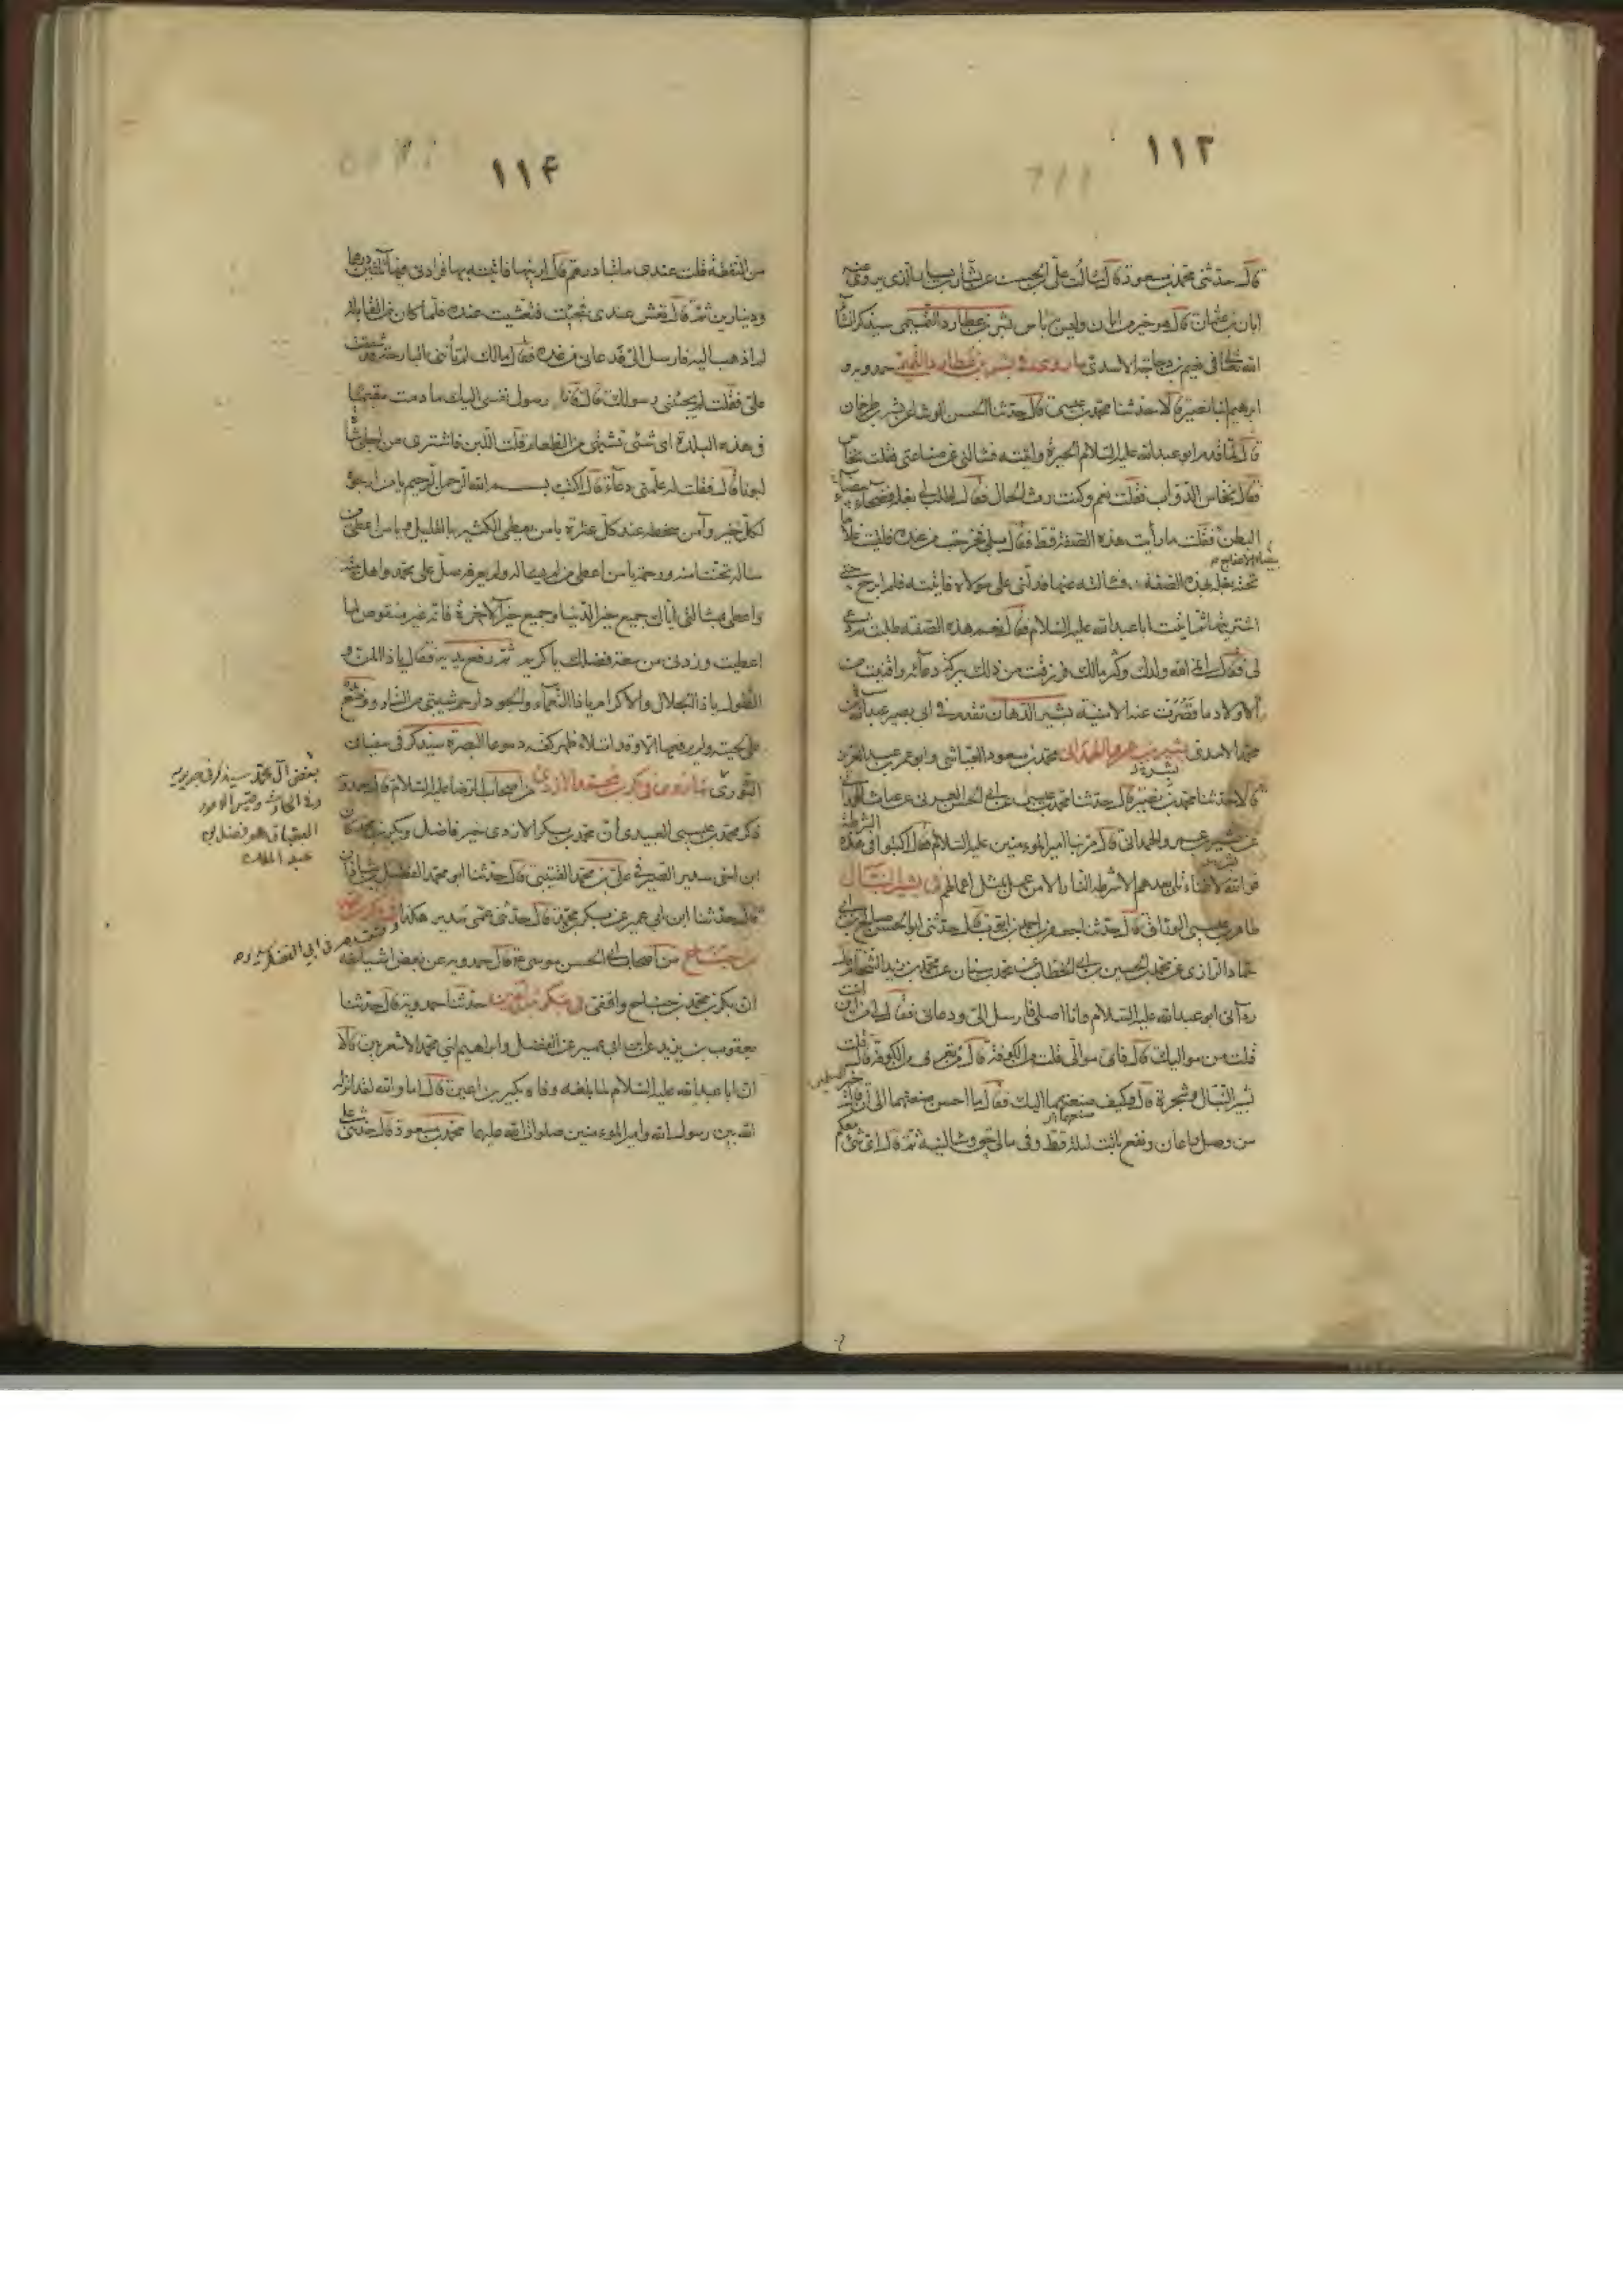 ١١٣
قال حدثنى محمد بن مسعود قال سالت على بن الحسن عن بشار بن بشار الذى يروى عنه
ابان بن عثمان قال هو خير من ابان وليس به باس بشر بن عطارد التميمى سيذكر انشأ
الله تعالى فى نعيم بن دجاجة الاسدى ما روى فى بشر بن طرخان حمدويه و
ابرهيم ابنا نصير قالا حدثنا محمد بن عيسى قال حدثنا الحسن الوشا عن بشر بن طرخان
قال لما قدم ابو عبد الله عليه السلام الحيرة واتيته فسالنى عن صناعتى فقلت نخاس
فقال نخاس الدواب فقلت نعم وكنت رث الحال فقال اطلب لى بغلة فضحاء بيضاء
البطن فقلت ما رأيت هذه الصفة قط فقال بلى فخرجت من عنده فلقيت غلاما
بيضاء الافحاج
تحته بغلة بهذه الصفة فسالته عنها فدلنى على مولاه فاتيته فلم ابرح حتى
اشتريتها ثم اتيت ابا عبد الله عليه السلام فقال نعم هذه الصفة طلبت ثم دعى
لى فقال انمى الله ولدك وكثر مالك فرزقت من ذلك ببركة دعائه واقتنيت من
الاولاد ما قصرت عنه الامنية بشير الدهان تقدم فى ابى بصير عبد الله بن
محمد الاسدى بشير بن عمرو الهمدانى محمد بن مسعود العياشى وابو عمرو بن عبد العزيز
قالا حدثنا محمد بن نصير قال حدثنا محمد بن عيسى عن ابى الحسن العرنى عن غياث الهمدانى
عن بشير بن عمرو الهمدانى قال مر بنا امير المومنين عليه السلام فقال اكتبوا فى هذه الشرطة
فوالله لا غناء لمن بعدهم الا شرطة النار الا من عمل بمثل اعمالهم فى بشير النبال
طاهر بن عيسى الوراق قال حدثنا جعفر بن احمد بن ايوب قال حدثنى ابو الحسن صالح بن ابى
حماد الرازى عن محمد بن الحسين بن ابى الخطاب عن محمد بن سنان عن محمد بن زيد الشحام قال
رآنى ابو عبد الله عليه السلام وانا اصلى فارسل الى ودعانى فقال لى من اين انت
قلت من مواليك قال فاى موالى قلت من الكوفة قال من تعرف من الكوفة قال قلت
بشير النبال وشجرة قال وكيف صنيعتهما اليك فقال ما احسن صنيعتهما الى قال خير المسلمين
من وصل واعان ونفع ما بت ليلة قط وفى مالى حق يسالنيه ثم قال اى شئ معكم
١١۴
من النفقة قلت عندى مائتا درهم قال ارنيها فاتيته بها فزادنى فيها ثلثين درهما
ودينارين ثم قال تعش عندى فجئت فتعشيت عنده فلما كان من القابلة
لم اذهب اليه فارسل الى فدعانى من غده فقال مالك لم تأتنى البارحة قد شفقت
على فقلت لم يجئنى رسولك قال فانا رسول نفسى اليك ما دمت مقيما
فى هذه البلدة اى شئ تشتهى من الطعام قلت اللبن فاشترى من اجلى شاة
لبونا قال فقلت له علمنى دعاء قال اكتب بسم الله الرحمن الرحيم يا من ارجوه
لكل خير وآمن سخطه عند كل عثرة يا من يعطى الكثير بالقليل ويا من اعطى من
ساله تحننا منه ورحمة يا من اعطى من لم يساله ولم يعرفه صل على محمد واهل بيته
واعطنى بمسالتى اياك جميع خير الدنيا وجميع خير الاخرة فانه غير منقوص لما
اعطيت وزدنى من سعة فضلك يا كريم ثم رفع يديه فقال يا ذا المن و
الطول يا ذا الجلال والاكرام يا ذا النعماء والجود ارحم شيبتى من النار ووضع يده
على لحيته ولم يرفعها الا وقد امتلاء ظهر كفه دموعا البصرة سيذكر فى سفيان
الثورى ما روى فى بكر بن محمد الازدى من اصحاب الرضا عليه السلام قال حمدويه
ذكر محمد بن عيسى العبيدى ان محمد بن بكر الازدى خير فاضل وبكر بن محمد كان
ابن اخى سدير الصيرفى على بن محمد القتيبى قال حدثنا ابو محمد الفضل بن شاذان
قال حدثنا ابن ابى عمير عن بكر بن محمد قال حدثنى عمى سدير هكذا فى بكر بن محمد
بن جناح من اصحاب ابى الحسن موسى ع قال حمدويه عن بعض اشياخه
ان بكر بن محمد بن جناح واقفى فى بكير بن اعين حدثنا حمدويه قال حدثنا
يعقوب بن يزيد عن ابن ابى عمير عن الفضل وابراهيم ابنى محمد الاشعريين قالا
ان ابا عبد الله عليه السلام لما بلغه وفاة بكير بن اعين قال اما والله لقد انزله
الله بين رسول الله وامير المومنين صلوات الله عليهما محمد بن مسعود قال حدثنى على
بعض آل محمد سيذكر فى جويريه
العقباق هو فضل بن
عبد الملك